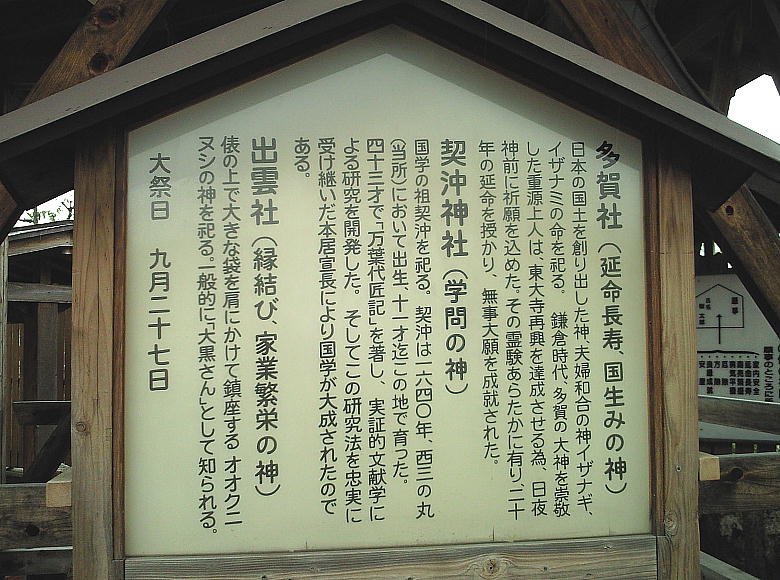 多賀社（延命長寿、国生みの神）
日本の国土を創り出した神、夫婦和合の神イザナギ、
イザナミの命を祀る。 鎌倉時代、多賀の大神を崇敬
した重源上人は、東大寺再興を達成させる為、日夜
神前に祈願を込めた。その霊験あらたかに有り、二十
年の延命を授かり、無事大願を成就された。
契沖神社（学問の神）
国学の祖契沖を祀る。契沖は一六四〇年、西三の丸
（当所）において出生、十一才迄この地で育った。
四十三才で「万葉代匠記」を著し、実証的文献学に
よる研究を開発した。そしてこの研究法を忠実に
受け継いだ本居宣長により国学が大成されたので
ある。
出雲社（縁結び、家業繁栄の神）
俵の上で大きな袋を肩にかけて鎮座する オオクニ
ヌシの神を祀る。一般的に「大黒さん」として知られる。
大祭日 九月二十七日